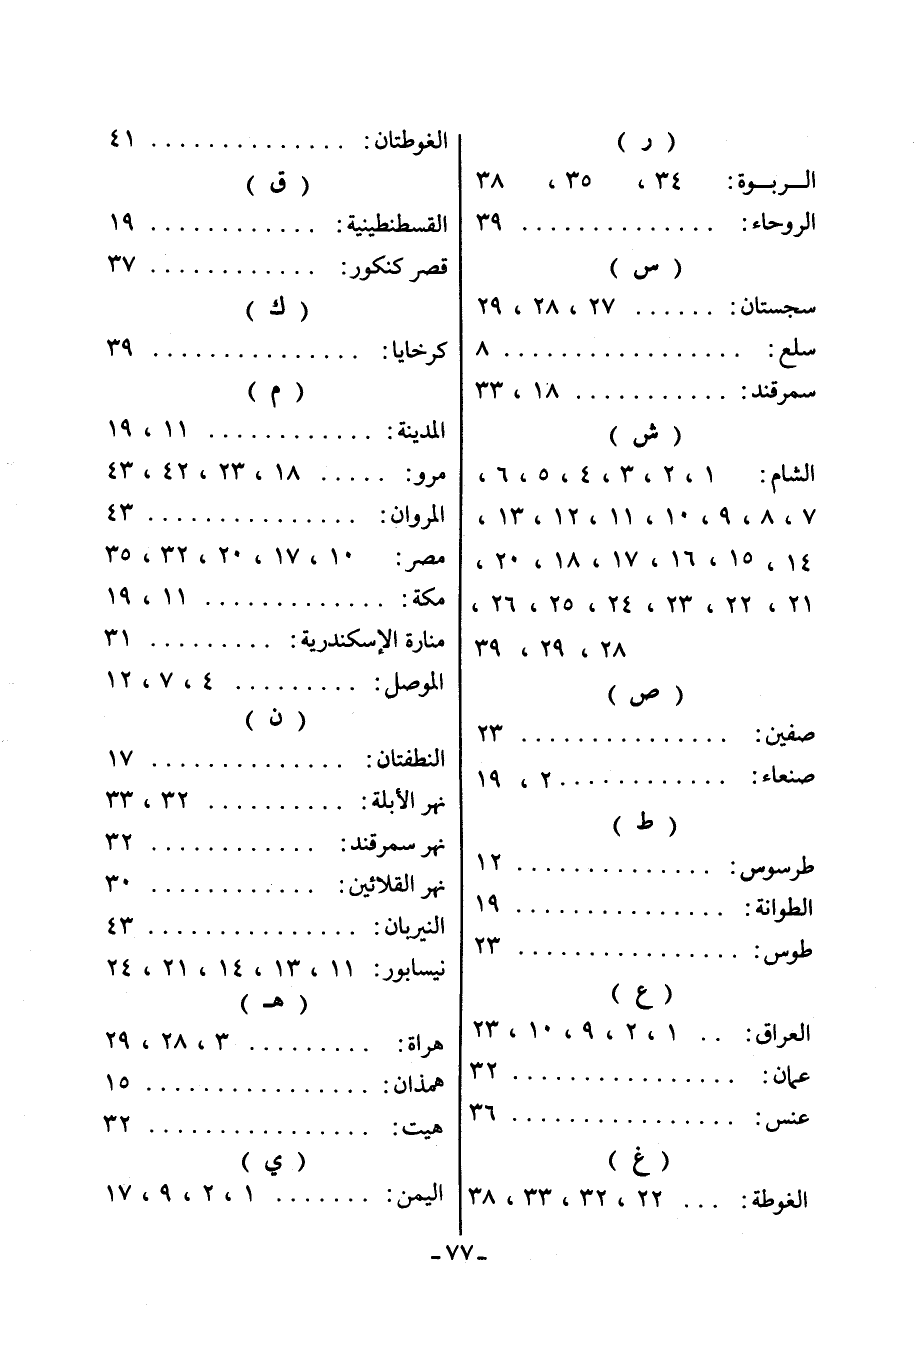 ( ر )
الـــربـــوة: ٣٤ ، ٣٥ ، ٣٨
الروحاء: . . . . . . . . . . . . . . ٣٩
( س )
سجستان: . . . . . . ٢٧ ، ٢٨ ، ٢٩
سلع: . . . . . . . . . . . . . . . . . ٨
سمرقند: . . . . . . . . . . . ١٨ ، ٣٣
( ش )
الشام: ١ ، ٢ ، ٣ ، ٤ ، ٥ ، ٦ ،
٧ ، ٨ ، ٩ ، ١٠ ، ١١ ، ١٢ ، ١٣ ،
١٤ ، ١٥ ، ١٦ ، ١٧ ، ١٨ ، ٢٠ ،
٢١ ، ٢٢ ، ٢٣ ، ٢٤ ، ٢٥ ، ٢٦ ،
٢٨ ، ٢٩ ، ٣٩
( ص )
صفين: . . . . . . . . . . . . . . . ٢٣
صنعاء: . . . . . . . . . . . . ٢ ، ١٩
( ط )
طرسوس: . . . . . . . . . . . . . . ١٢
الطوانة: . . . . . . . . . . . . . . . ١٩
طوس: . . . . . . . . . . . . . . . . ٢٣
( ع )
العراق: . . ١ ، ٢ ، ٩ ، ١٠ ، ٢٣
عمان: . . . . . . . . . . . . . . . . ٣٢
عنس: . . . . . . . . . . . . . . . . ٣٦
( غ )
الغوطة: . . . ٢٢ ، ٣٢ ، ٣٣ ، ٣٨
الغوطتان: . . . . . . . . . . . . . . ٤١
( ق )
القسطنطينية: . . . . . . . . . . . . ١٩
قصر كنكور: . . . . . . . . . . . . ٣٧
( ك )
كرخايا: . . . . . . . . . . . . . . . ٣٩
( م )
المدينة: . . . . . . . . . . . . ١١ ، ١٩
مرو: . . . . . ١٨ ، ٢٣ ، ٤٢ ، ٤٣
المروان: . . . . . . . . . . . . . . . ٤٣
مصر: ١٠ ، ١٧ ، ٢٠ ، ٣٢ ، ٣٥
مكة: . . . . . . . . . . . . . ١١ ، ١٩
منارة الإسكندرية: . . . . . . . . . ٣١
الموصل: . . . . . . . . . ٤ ، ٧ ، ١٢
( ن )
النطفتان: . . . . . . . . . . . . . . ١٧
نهر الأبلة: . . . . . . . . . . ٣٢ ، ٣٣
نهر سمرقند: . . . . . . . . . . . . ٣٢
نهر القلائين: . . . . . . . . . . . . ٣٠
النيربان: . . . . . . . . . . . . . . . ٤٣
نيسابور: ١١ ، ١٣ ، ١٤ ، ٢١ ، ٢٤
( هـ )
هراة: . . . . . . . . . ٣ ، ٢٨ ، ٢٩
همذان: . . . . . . . . . . . . . . . . ١٥
هيت: . . . . . . . . . . . . . . . . ٣٢
( ي )
اليمن: . . . . . . . ١ ، ٢ ، ٩ ، ١٧
ـ ٧٧ ـ